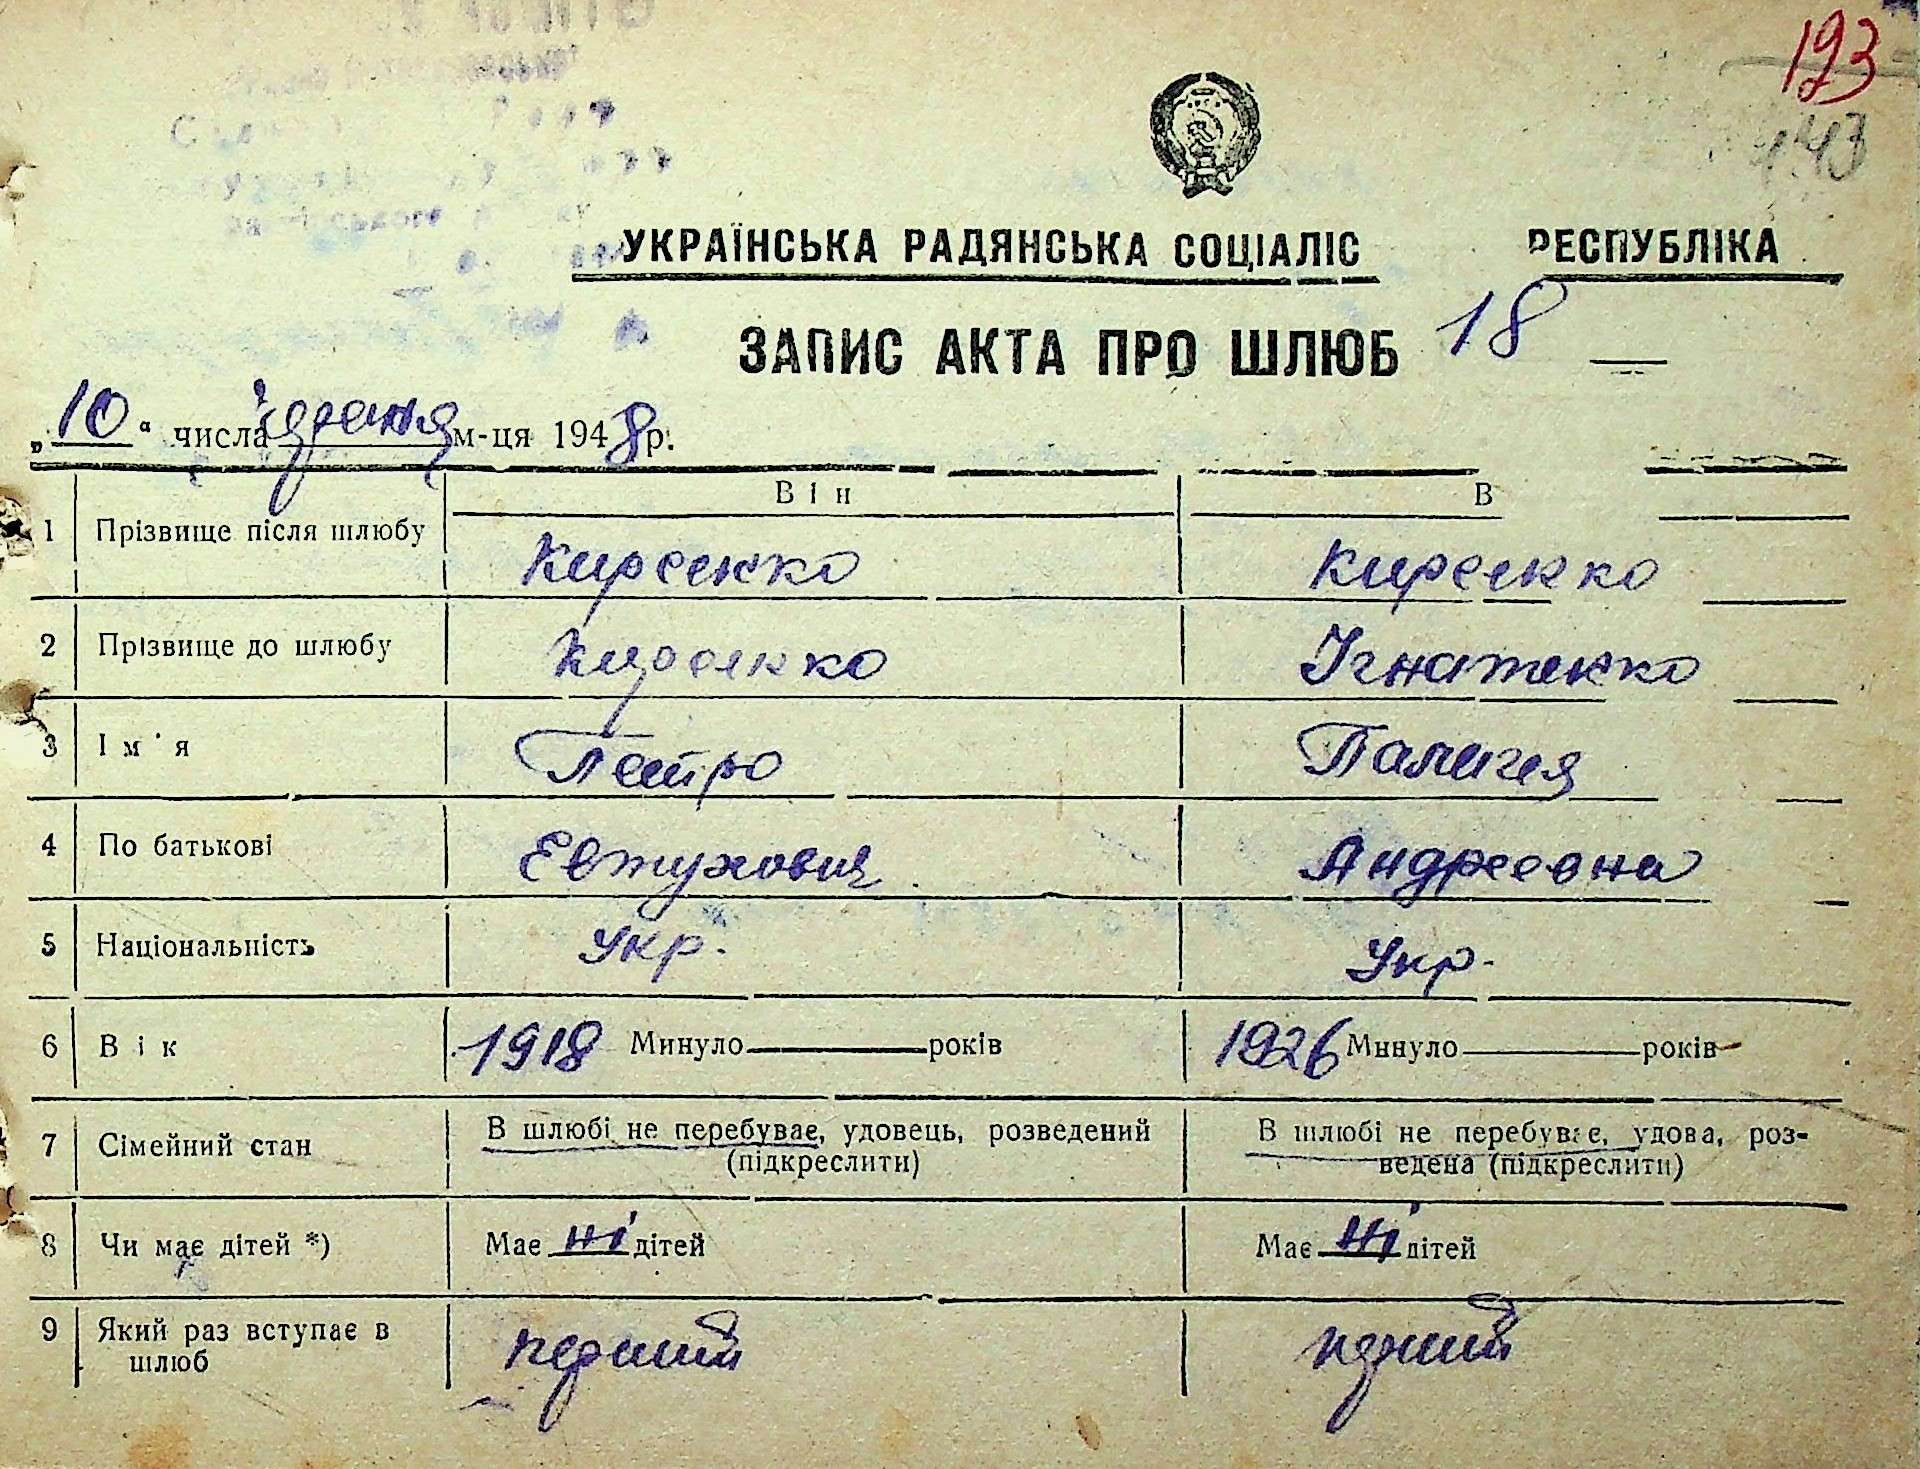 193
443
УКРАЇНСЬКА РАДЯНСЬКА СОЦІАЛІС РЕСПУБЛІКА
ЗАПИС АКТА ПРО ШЛЮБ 18
„10“ числа м-ця 1948 р.
Він В
1 Прізвище після шлюбу Киреенко Киреенко
2 Прізвище до шлюбу Киреенко Ігнатенко
3 Ім'я Петро Палагея
4 По батькові Евтухович Андреевна
5 Національність Укр. Укр.
6 Вік 1918 Минуло років 1926 Минуло років
7 Сімейний стан В шлюбі не перебуває, удовець, розведений В шлюбі не перебуває, удова, роз-
(підкреслити) ведена (підкреслити)
8 Чи має дітей *) Має ні дітей Має ні дітей
9 Який раз вступає в перший перший
шлюб